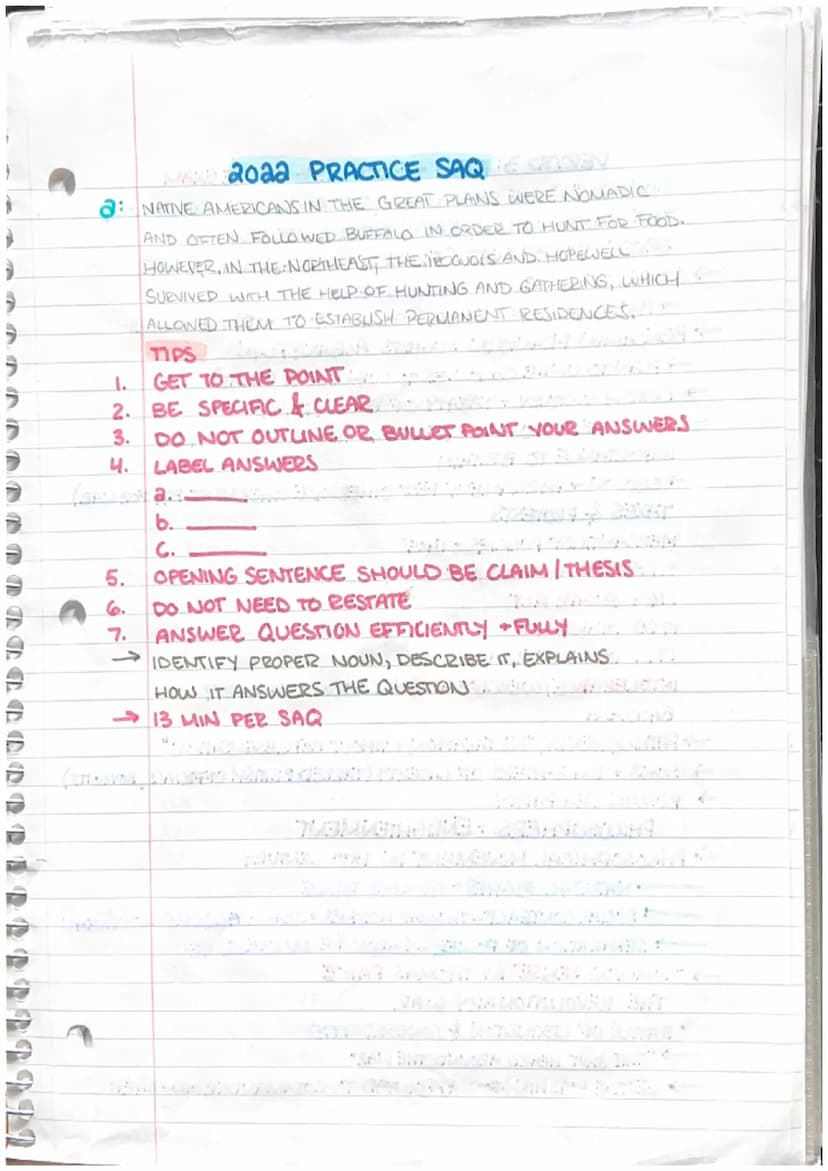 2022 PRACTICE SAQ
a: NATIVE AMERICANS IN THE GREAT PLANS WERE NOMADIC
AND OFTEN FOLLOWED BUFFALO IN ORDER TO HUNT FOR FOOD.
HOWEVER, IN THE NORTHEAST, THE IROQUOIS AND HOPEWELL
SURVIVED WITH THE HELP OF HUNTING AND GATHERING, WHICH
ALLOWED THEM TO ESTABLISH PERMANENT RESIDENCES.
TIPS
1. GET TO THE POINT
2. BE SPECIFIC & CLEAR
3. DO NOT OUTLINE OR BULLET POINT YOUR ANSWERS
4. LABEL ANSWERS
a.
b.
c.
5. OPENING SENTENCE SHOULD BE CLAIM/THESIS
6. DO NOT NEED TO RESTATE
7. ANSWER QUESTION EFFICIENTLY + FULLY
→ IDENTIFY PROPER NOUN, DESCRIBE IT, EXPLAINS
HOW IT ANSWERS THE QUESTION
→ 13 MIN PER SAQ